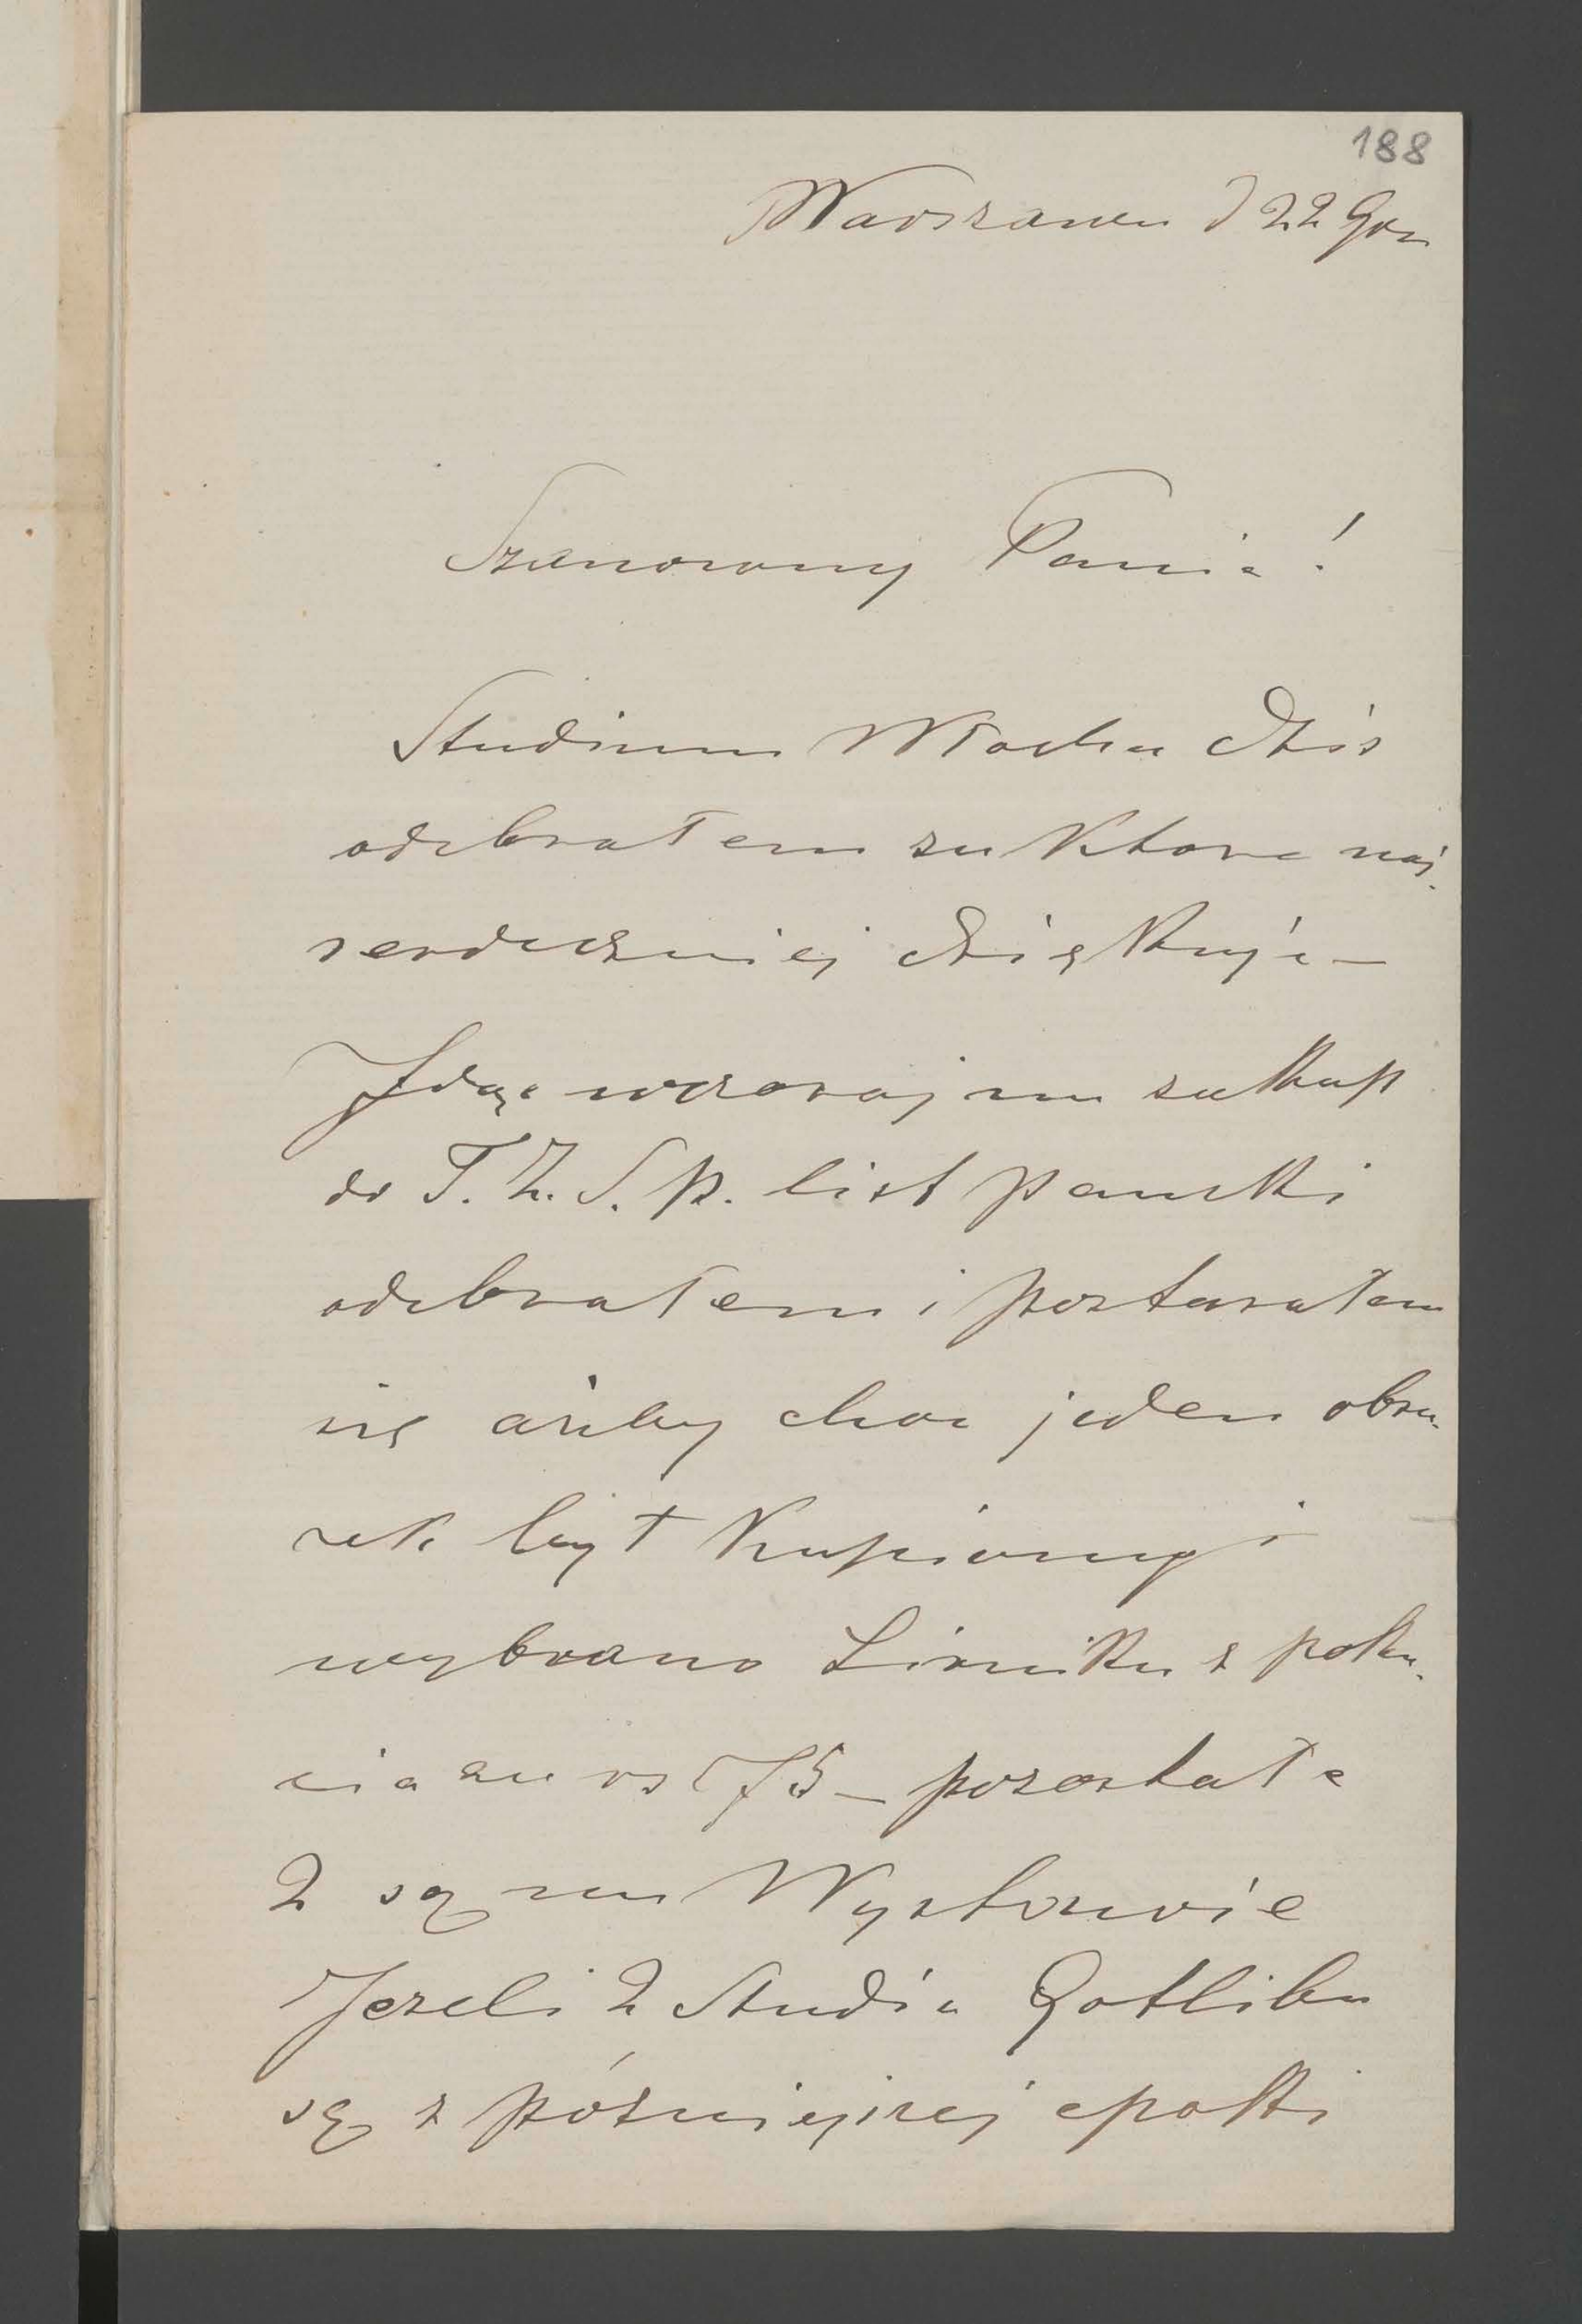 188
Warszawa d 22 Gru
Szanowny Panie!
Studium Włocha dziś
odebrałem za które naj-
serdeczniej dziękuję —
Idąc wczoraj na zakup
do T. Z. S. P. list pański
odebrałem i postarałem
się ażeby choc jeden obra-
zek był kupiony i
wybrano Lirnika z poku-
cia za rs 75 — pozostałe
2 są na Wystawie
Jezeli 2 Studia Gotliba
są z późniejszej epoki